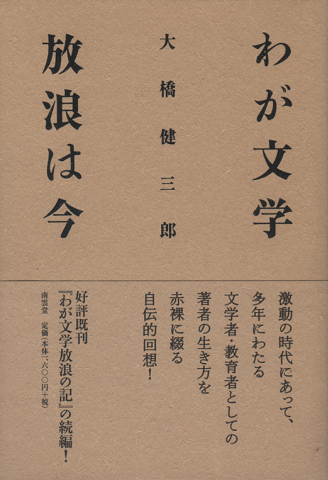 わが文学
放浪は今
大橋健三郎
激動の時代にあって、
多年にわたる
文学者・教育者としての
著者の生き方を
赤裸に綴る
自伝的回想！
好評既刊
『わが文学放浪の記』の続編！
南雲堂 定価（本体一、六〇〇円＋税）